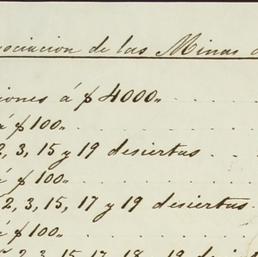 sociacion de las Minas d
iones á $ 4000..
á $ 100..
2, 3, 15 y 19 desiertas
á $ 100..
2, 3, 15, 17 y 19 desiertas
á $ 100..
2, 3, 15, 17, 18 19